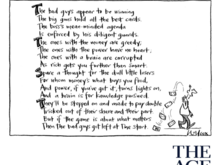 The bad guys appear to be winning
The big guns hold all the best cards
The boss's mean-minded agenda
Is enforced by his diligent guards.
The ones with the money are greedy
The ones with the power have no heart,
The ones with a brain are corrupted
As rich gets you further than smart.
Spare a thought for the dull little losers
For whom money's what buys you food,
And power, if you've got it, turns lights on,
And a brain is for knowledge pursued.
They'll be stepped on and made to pay double
Tricked out of their share and their part
But if the game is about what matters
Then the bad guys got left at the start.
THE
AGE